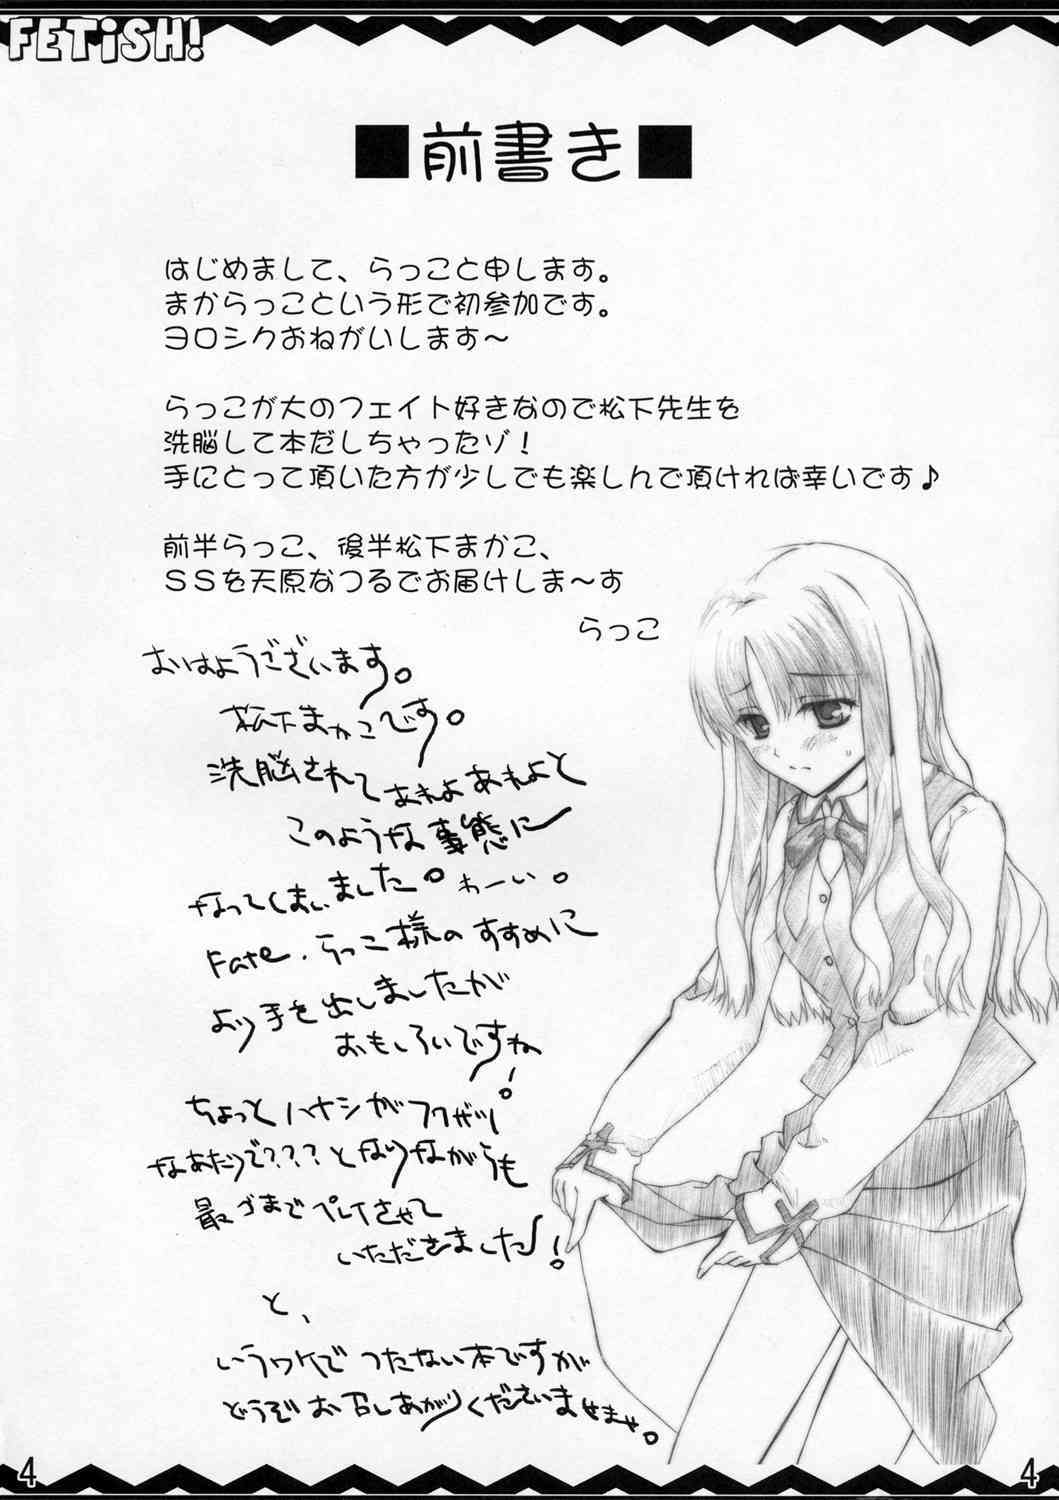 FETiSH!
■前書き■
はじめまして、らっこと申します。
まからっこという形で初参加です。
ヨロシクおねがいします～
らっこが大のフェイト好きなので松下先生を
洗脳して本だしちゃったゾ！
手にとって頂いた方が少しでも楽しんで頂ければ幸いです♪
前半らっこ、後半松下まかこ、
ＳＳを天原なつるでお届けしま～す
らっこ
おはようございます。
松下まかこです。
洗脳されてあれよあれよと
このような事態に
なってしまいました。わーい。
Fate、らっこ様のすすめに
より手を出しましたが
おもしろいですね！
ちょっとハナシがフクザツ
なあたりで???となりながらも
最後までプレイさせて
いただきました！
と、
いうワケでつたない本ですが
どうぞお召しあがりくださいませませ。
4
4